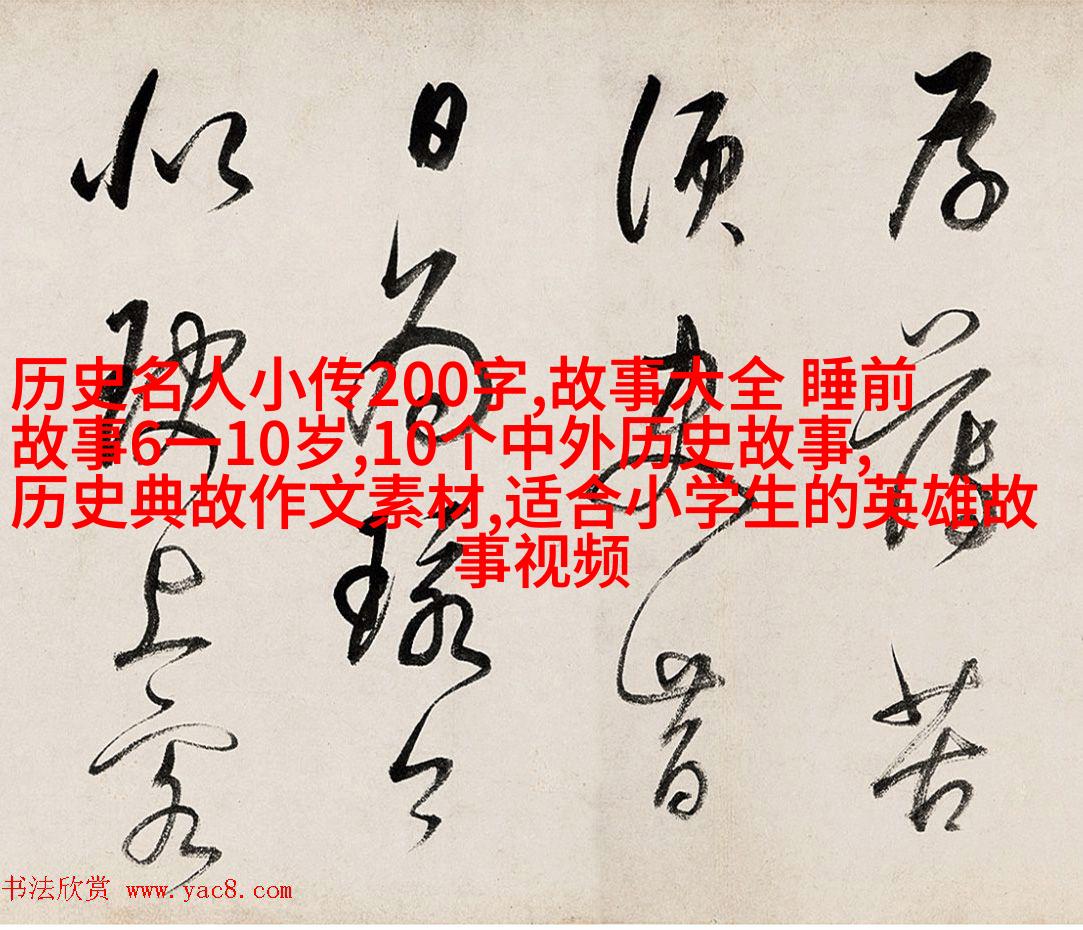 苦
須
日
似 上客
历史名人小传200字,故事大全 睡前
故事6一10岁,10个中外历史故事,
历史典故作文素材,适合小学生的英雄故
事视频
书法欣赏 www.yac8.com